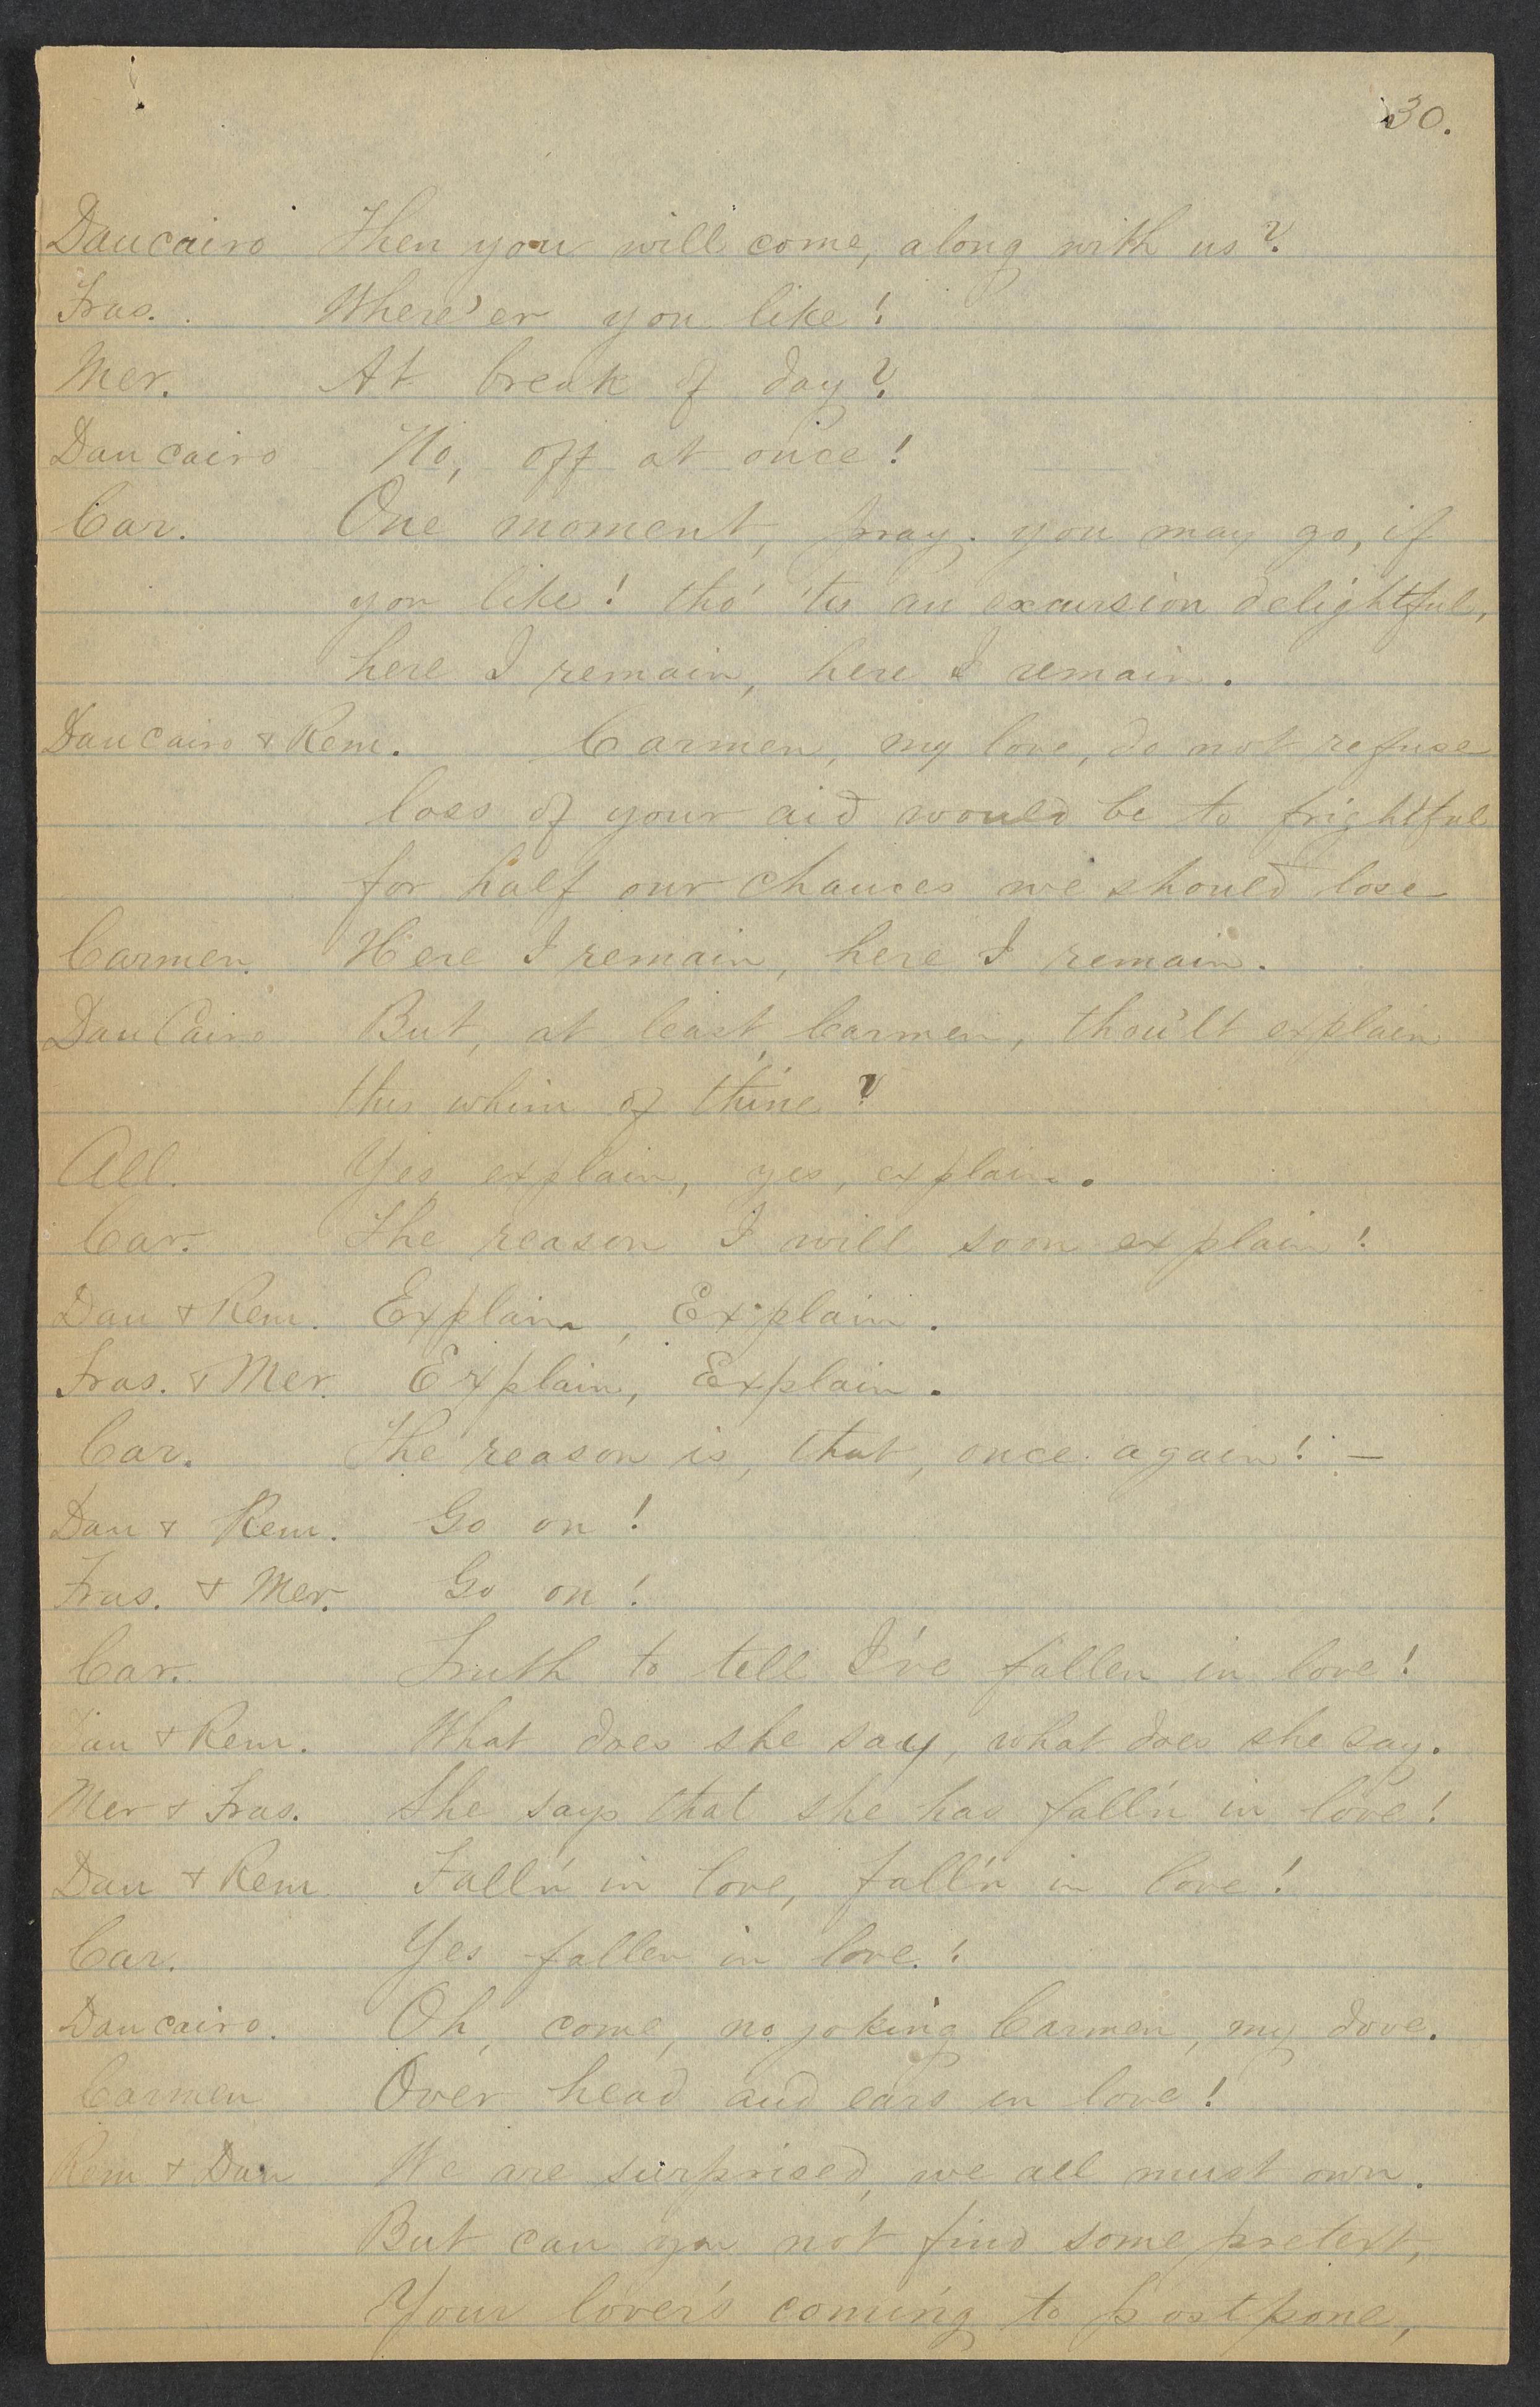 30.
Daucairo Then you will come, along with us?
Fras. Where'er you like!
Mer. At break of day?
Daucairo No, off at once!
Car. One moment, pray. you may go, if
you like! tho' 'tis an excursion delightful,
here I remain, here I remain.
Daucairo & Rem. Carmen, my love, do not refuse
loss of your aid would be to frightful
for half our chances we should lose
Carmen. Here I remain, here I remain.
DauCairo But, at least, Carmen, thou'lt explain
this whim of thine?
All. Yes explain, yes, explain.
Car. The reason I will soon explain!
Dau & Rem. Explain, Explain.
Fras. & Mer. Explain, Explain.
Car. The reason is, that, once again! —
Dau & Rem. Go on!
Fras. & Mer. Go on!
Car. Truth to tell I've fallen in love!
Dau & Rem. What does she say, what does she say.
Mer & Fras. She says that she has fall'n in love!
Dau & Rem. Fall'n in love, fall'n in love!
Car. Yes fallen in love!
Daucairo. Oh, come, no joking Carmen, my dove.
Carmen Over head and ears in love!
Rem & Dau We are surprised, we all must own.
But can you not find some pretext,
Your lover's coming to postpone,